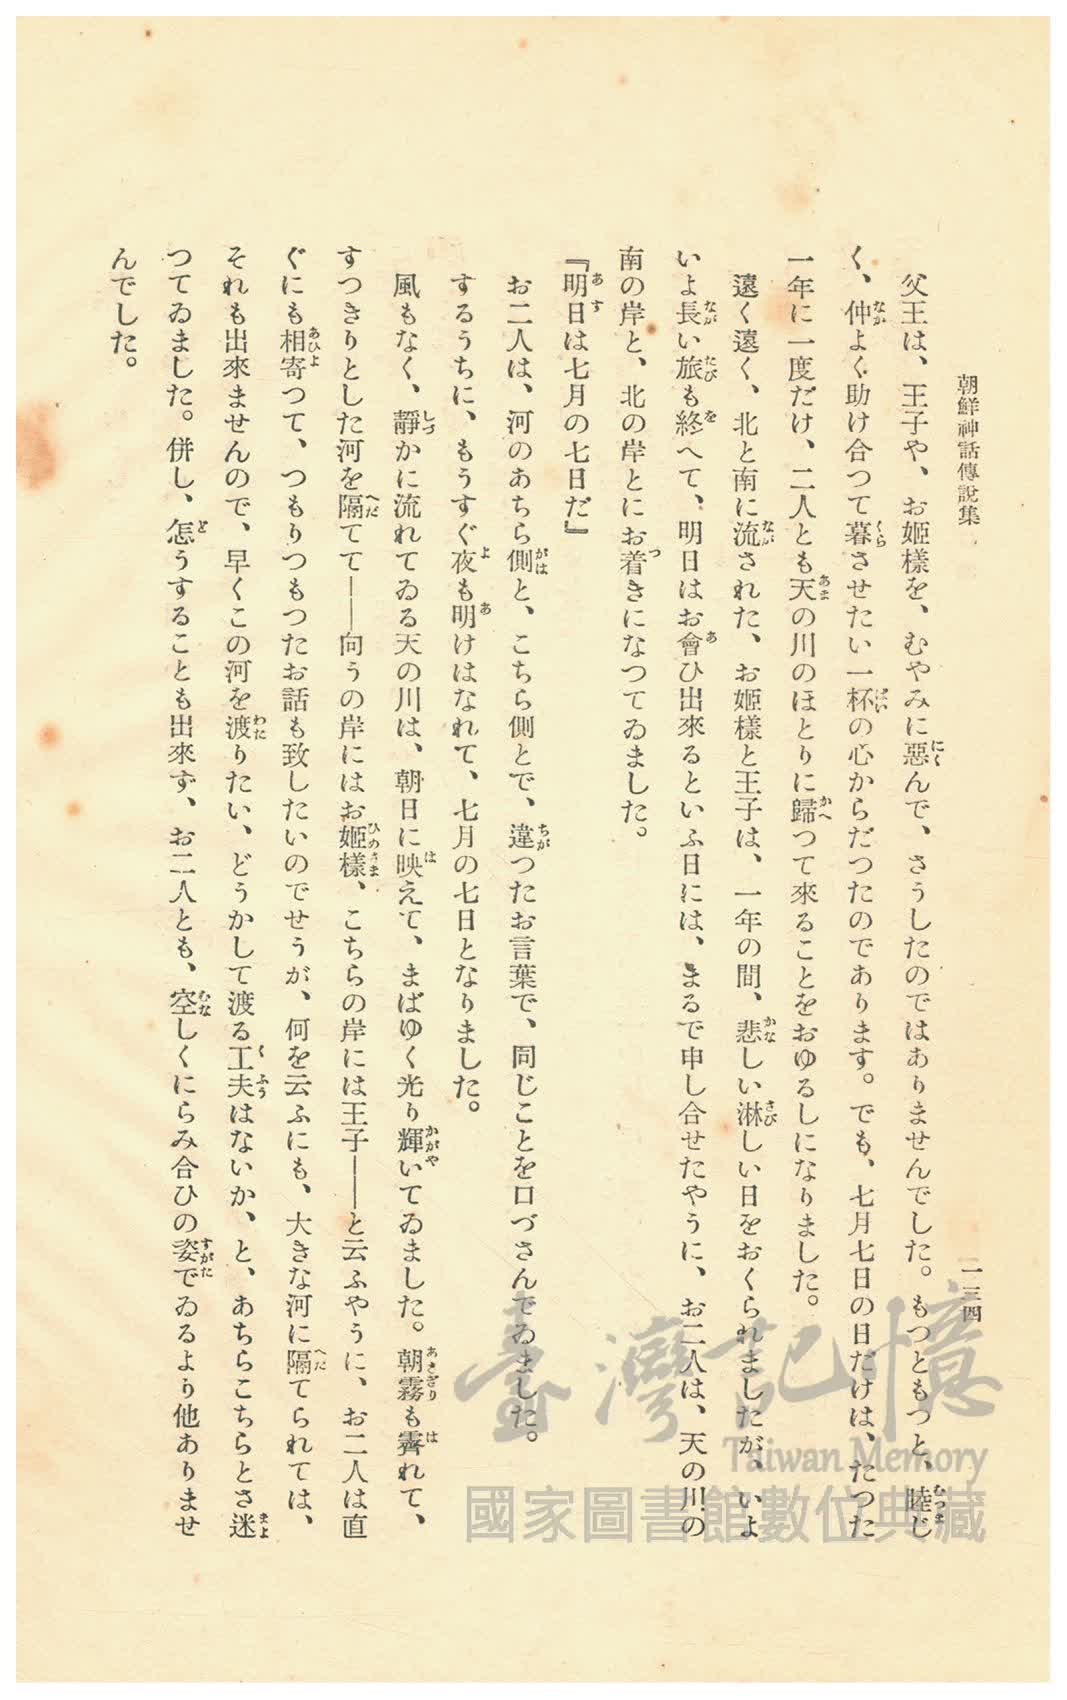 朝鮮神話傳說集
一三四
父王は、王子や、お姬樣を、むやみに惡んで、さうしたのではありませんでした。もつともつと、睦じ
く、仲よく助け合つて暮させたい一杯の心からだつたのであります。でも、七月七日の日だけは、たつた
一年に一度だけ、二人とも天の川のほとりに歸つて來ることをおゆるしになりました。
遠く遠く、北と南に流された、お姬樣と王子は、一年の間、悲しい淋しい日をおくられましたが、いよ
いよ長い旅も終へて、明日はお會ひ出來るといふ日には、まるで申し合せたやうに、お二人は、天の川の
南の岸と、北の岸とにお着きになつてゐました。
『明日は七月の七日だ』
お二人は、河のあちら側と、こちら側とで、違つたお言葉で、同じことを口づさんでゐました。
するうちに、もうすぐ夜も明けはなれて、七月の七日となりました。
風もなく、靜かに流れてゐる天の川は、朝日に映えて、まばゆく光り輝いてゐました。朝霧も霽れて、
すつきりとした河を隔てて――向うの岸にはお姬樣、こちらの岸には王子――と云ふやうに、お二人は直
ぐにも相寄つて、つもりつもつたお話も致したいのでせうが、何を云ふにも、大きな河に隔てられては、
それも出來ませんので、早くこの河を渡りたい、どうかして渡る工夫はないか、と、あちらこちらとさ迷
つてゐました。併し、怎うすることも出來ず、お二人とも、空しくにらみ合ひの姿でゐるより他ありませ
んでした。
臺灣記憶
Taiwan Memory
國家圖書館數位典藏